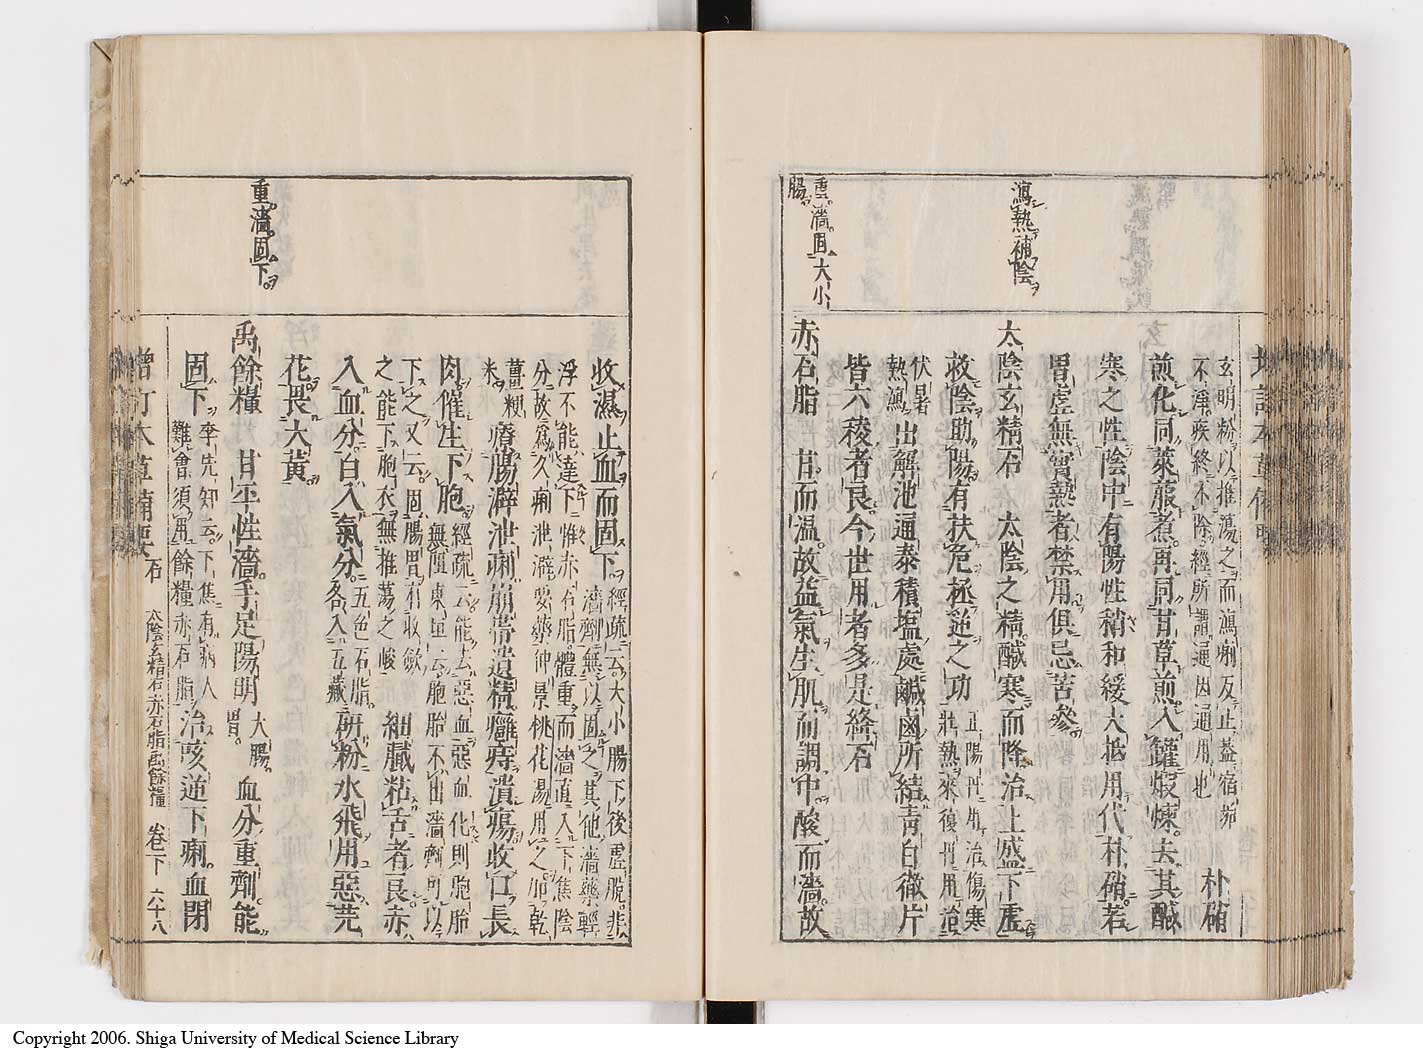 瀉熱補陰
重濇固大小
腸
玄明粉以推蕩之而瀉痢反止蓋宿垢
不淨疾終不除經所謂通因通用也
朴硝
煎化同萊菔煮再同甘草煎入罐煅煉去其鹹
寒之性陰中有陽性稍和緩大抵用代朴硝若
胃虛無實熱者禁用俱忌苦參
太陰玄精石 太陰之精鹹寒而降治上盛下虛
救陰助陽有扶危拯逆之功
正陽丹用治傷寒
壯熱來復丹用治
伏暑
熱瀉
出解池通泰積塩處鹹鹵所結青白徹片
皆六稜者良今世用者多是絳石
赤石脂 甘而温故益氣生肌而調中酸而濇故
重濇固下
收濕止血而固下
經疏云大小腸下後虛脫非
濇劑無以固之其他濇藥輕
浮不能達下惟赤石脂體重而濇直入下焦陰
分故爲久痢泄澼要藥仲景桃花湯用之加乾
薑粳
米
療腸澼泄痢崩帶遺精癰痔潰瘍收口長
肉催生下胞
經疏云能去惡血惡血化則胞胎
無阻東垣云胞胎不出濇劑可以
下之又云固腸胃有收斂
之能下胞衣無推蕩之峻
細膩粘舌者良赤
入血分白入氣分
五色石脂
各入五藏
研粉水飛用惡芫
花畏大黃
禹餘糧 甘平性濇手足陽明
大腸
胃
血分重劑能
固下
李先知云下焦有病人
難會須用餘糧赤石脂
治咳逆下痢血閉
增訂本草備要 石 太陰玄精石 赤石脂 禹餘糧 卷下 六十八
Copyright 2006. Shiga University of Medical Science Library